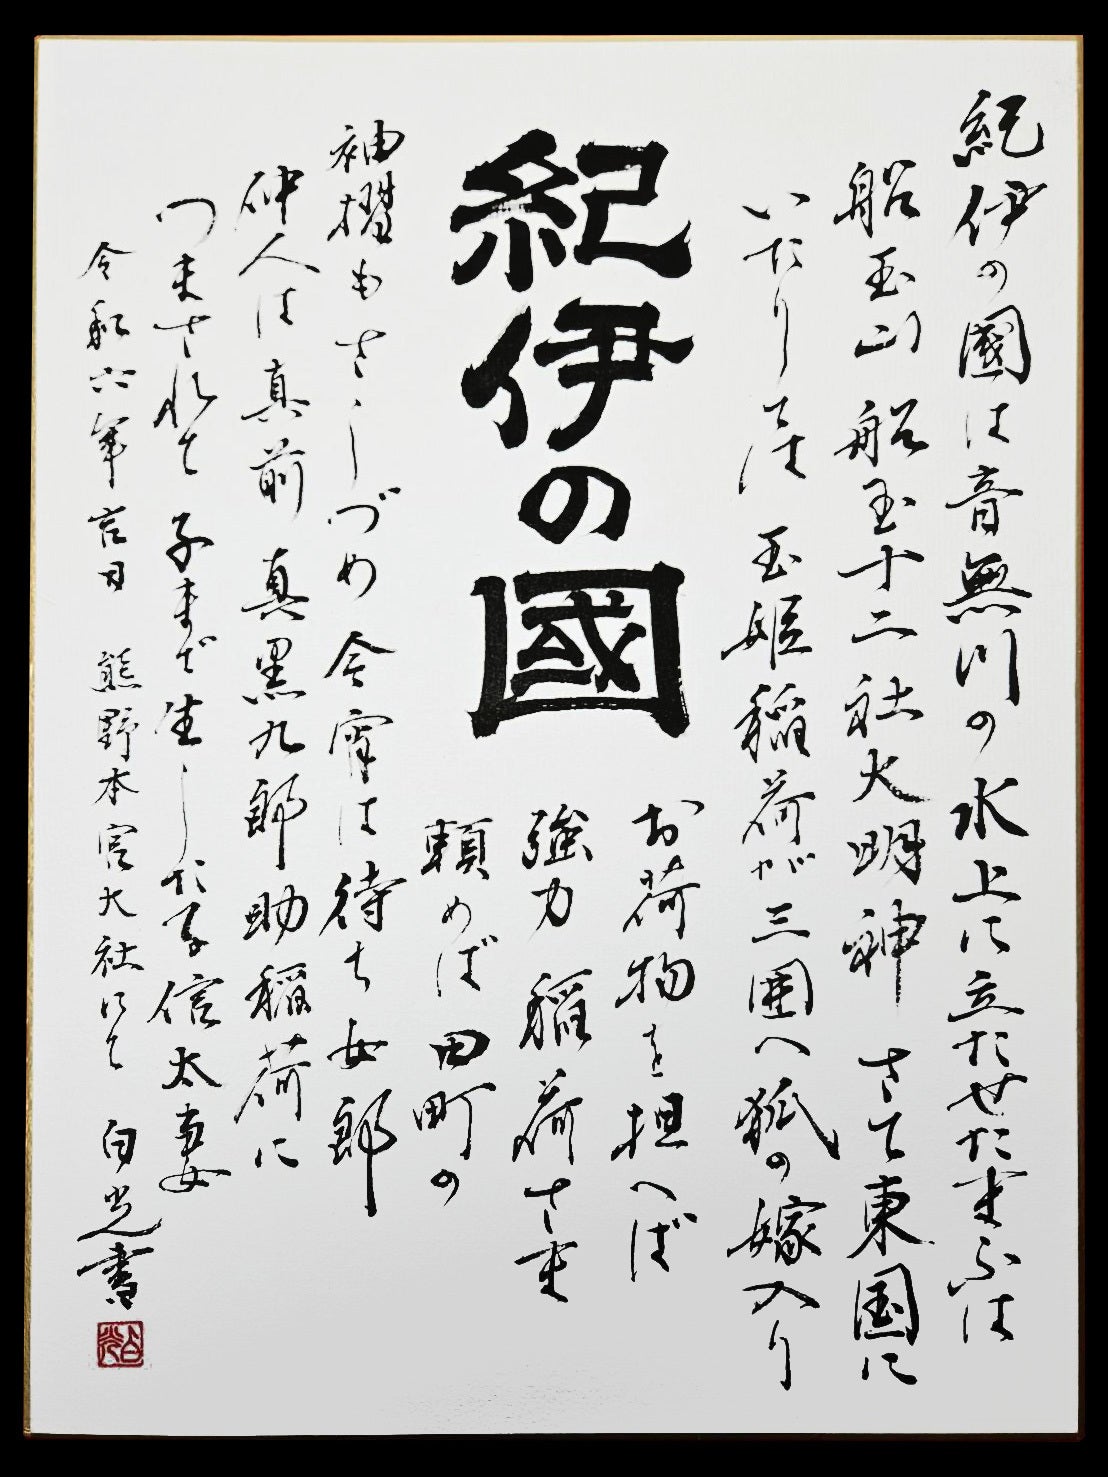 紀伊の國は音無川の水上に立たせたまふは
船玉山 船玉十二社大明神 さて東国に
いたりては 玉姫稲荷が三囲へ狐の嫁入り
紀伊の國
お荷物を担へば
強力 稲荷さま
頼めば 田町の
袖摺もさしづめ今宵は待ち女郎
仲人は真前 真黒九郎助稲荷に
つまされて 子まで生した子信太妻
令和六年吉日 熊野本宮大社にて 白光書